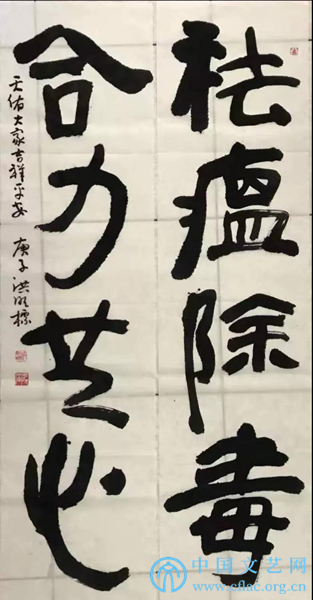 祛瘟除毒
合力共心
天佑大家吉祥平安
庚子洪明标
中国文艺网
www.cflac.org.cn